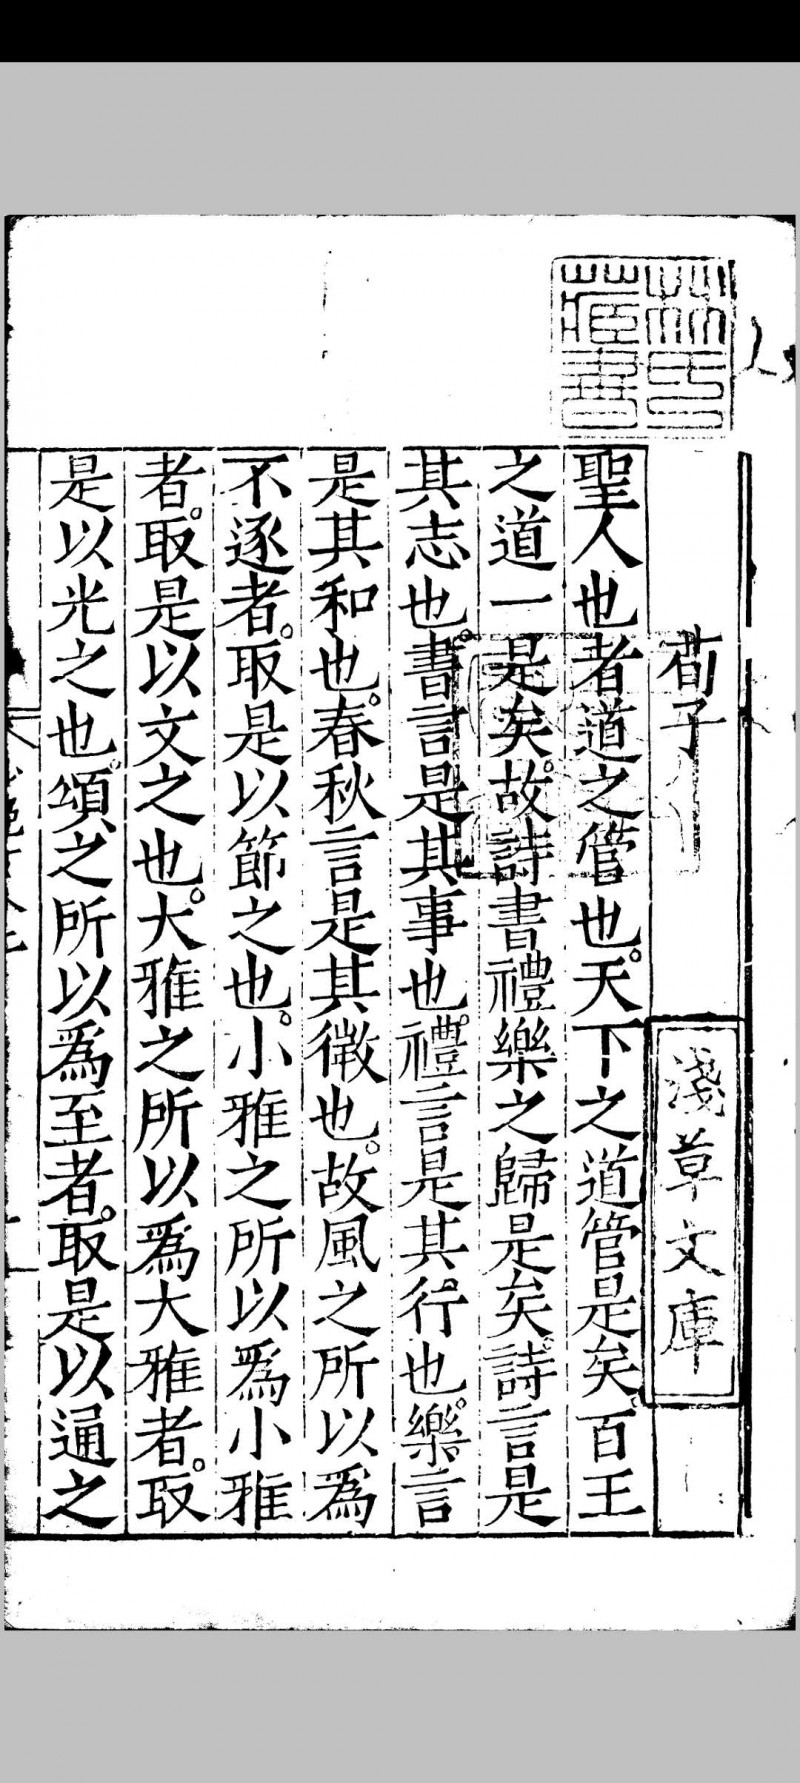 林氏
藏書
荀子
淺草文庫
聖人也者道之管也。天下之道管是矣。百王
之道一是矣。故詩書禮樂之歸是矣。詩言是
其志也。書言是其事也。禮言是其行也。樂言
是其和也。春秋言是其微也。故風之所以為
不逐者。取是以節之也。小雅之所以為小雅
者。取是以文之也。大雅之所以為大雅者。取
是以光之也。頌之所以為至者。取是以通之